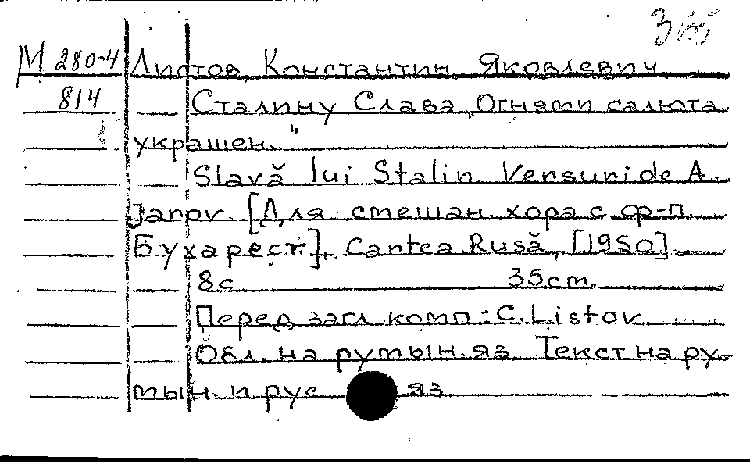 М 280-4 Листов, Константин Яковлевич
814 Сталину Слава „Огнями салюта
украшен."
Slavă lui Stalin Versuri de A.
Jarov. [Для смешан. хора с ф-п.
Бухарест], Cartea Rusă, [1950]
8с. 35cm.
Перед загл. комп.: C. Listov
Обл. на румын. яз. Текст на ру-
мын. и рус. яз.